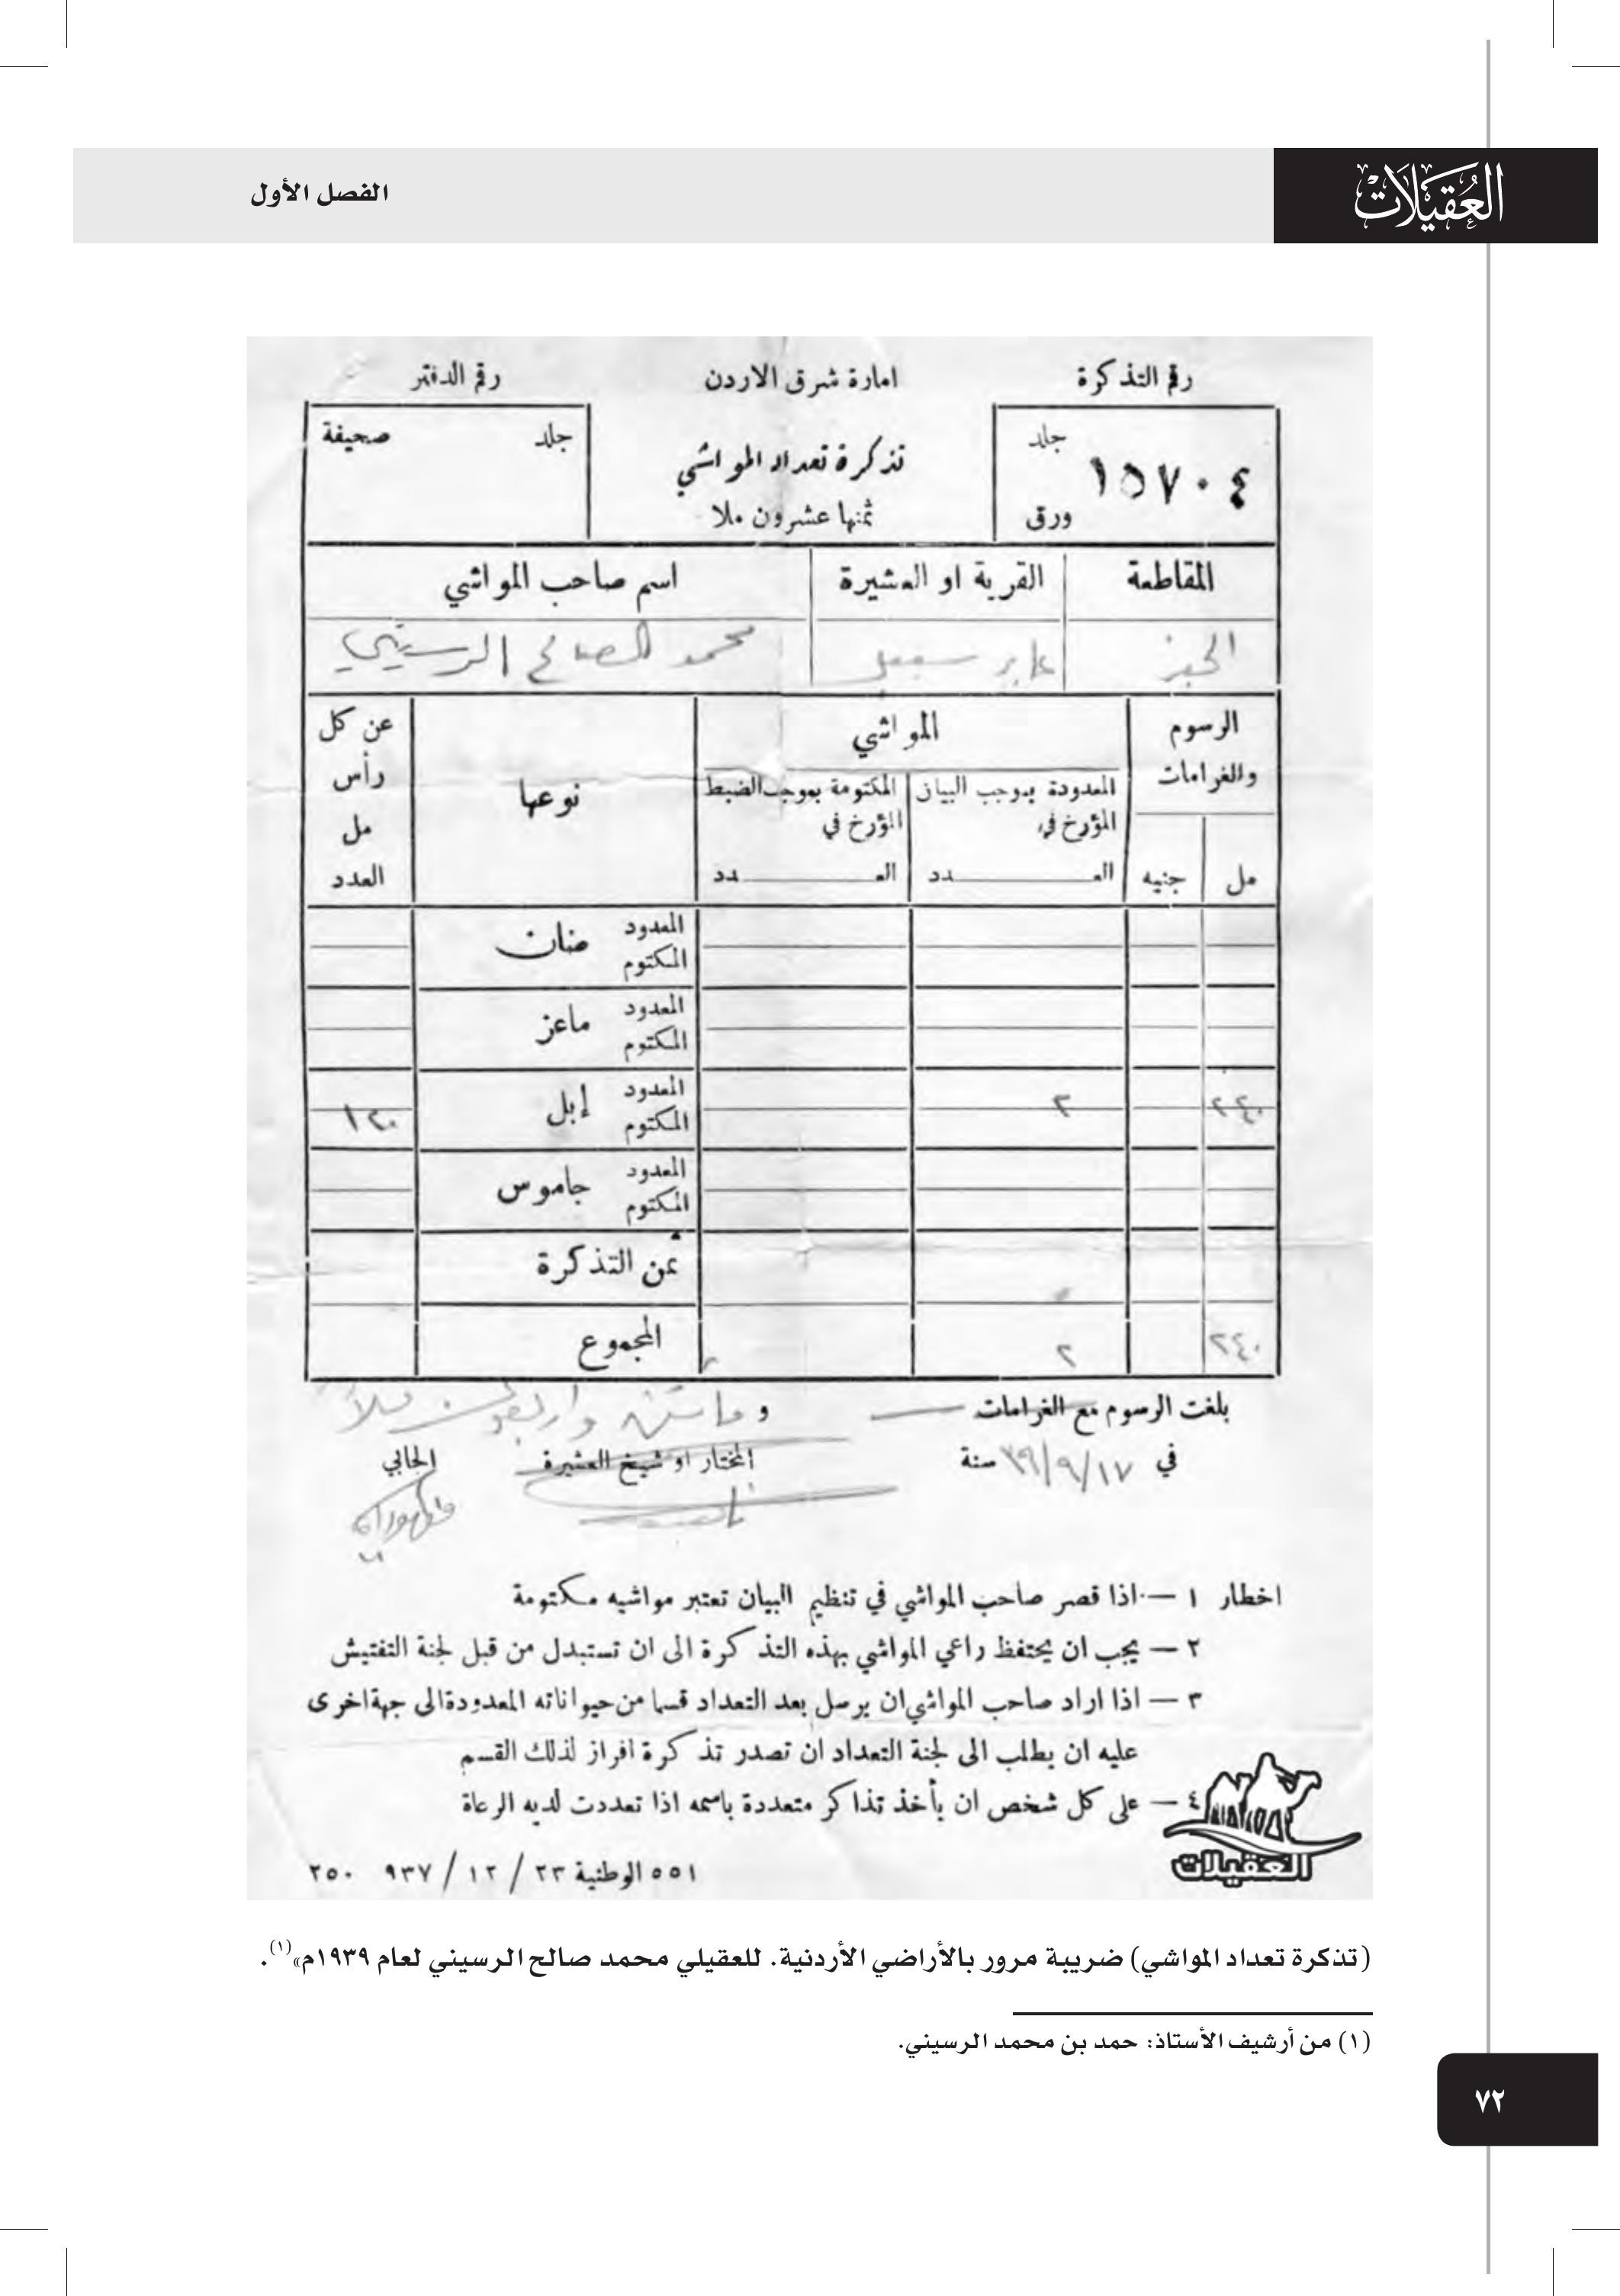 العقيلات
الفصل الأول
رقم التذكرة
امارة شرق الاردن
رقم الدفتر
جلد
١٥٧٠٤
ورق
تذكرة تعداد المواشي
ثمنها عشرون ملا
جلد
صحيفة
المقاطعة
القرية او العشيرة
اسم صاحب المواشي
عابر سبيل
محمد الصالح الرسيني
الرسوم
والغرامات
المواشي
نوعها
عن كل
رأس
مل
العدد
المعدودة بموجب البيان
المؤرخ في
العـــدد
المكتومة بموجب الضبط
المؤرخ في
العـــدد
مل
جنيه
المعدود
المكتوم
ضان
المعدود
المكتوم
ماعز
٢٤٠
٢
المعدود
المكتوم
إبل
١٢٠
المعدود
المكتوم
جاموس
ثمن التذكرة
٢٤٠
٢
المجموع
بلغت الرسوم مع الغرامات — و مايتين واربعون ملاً
في ١٧/٩/٣٩ سنة
المختار او شيخ العشيرة
الجابي
اخطار ١ — اذا قصر صاحب المواشي في تنظيم البيان تعتبر مواشيه مكتومة
٢ — يجب ان يحتفظ راعي المواشي بهذه التذكرة الى ان تستبدل من قبل لجنة التفتيش
٣ — اذا اراد صاحب المواشي ان يرسل بعد التعداد قسما من حيواناته المعدودة الى جهة اخرى
عليه ان يطلب الى لجنة التعداد ان تصدر تذكرة افراز لذلك القسم
٤ — على كل شخص ان يأخذ تذاكر متعددة باسمه اذا تعددت لديه الرعاة
العقيلات
٥٥١ الوطنية ٢٣ / ١٢ / ٩٣٧ ٢٥٠
(تذكرة تعداد المواشي) ضريبة مرور بالأراضي الأردنية. للعقيلي محمد صالح الرسيني لعام ١٩٣٩م»(١).
(١) من أرشيف الأستاذ: حمد بن محمد الرسيني.
٧٢